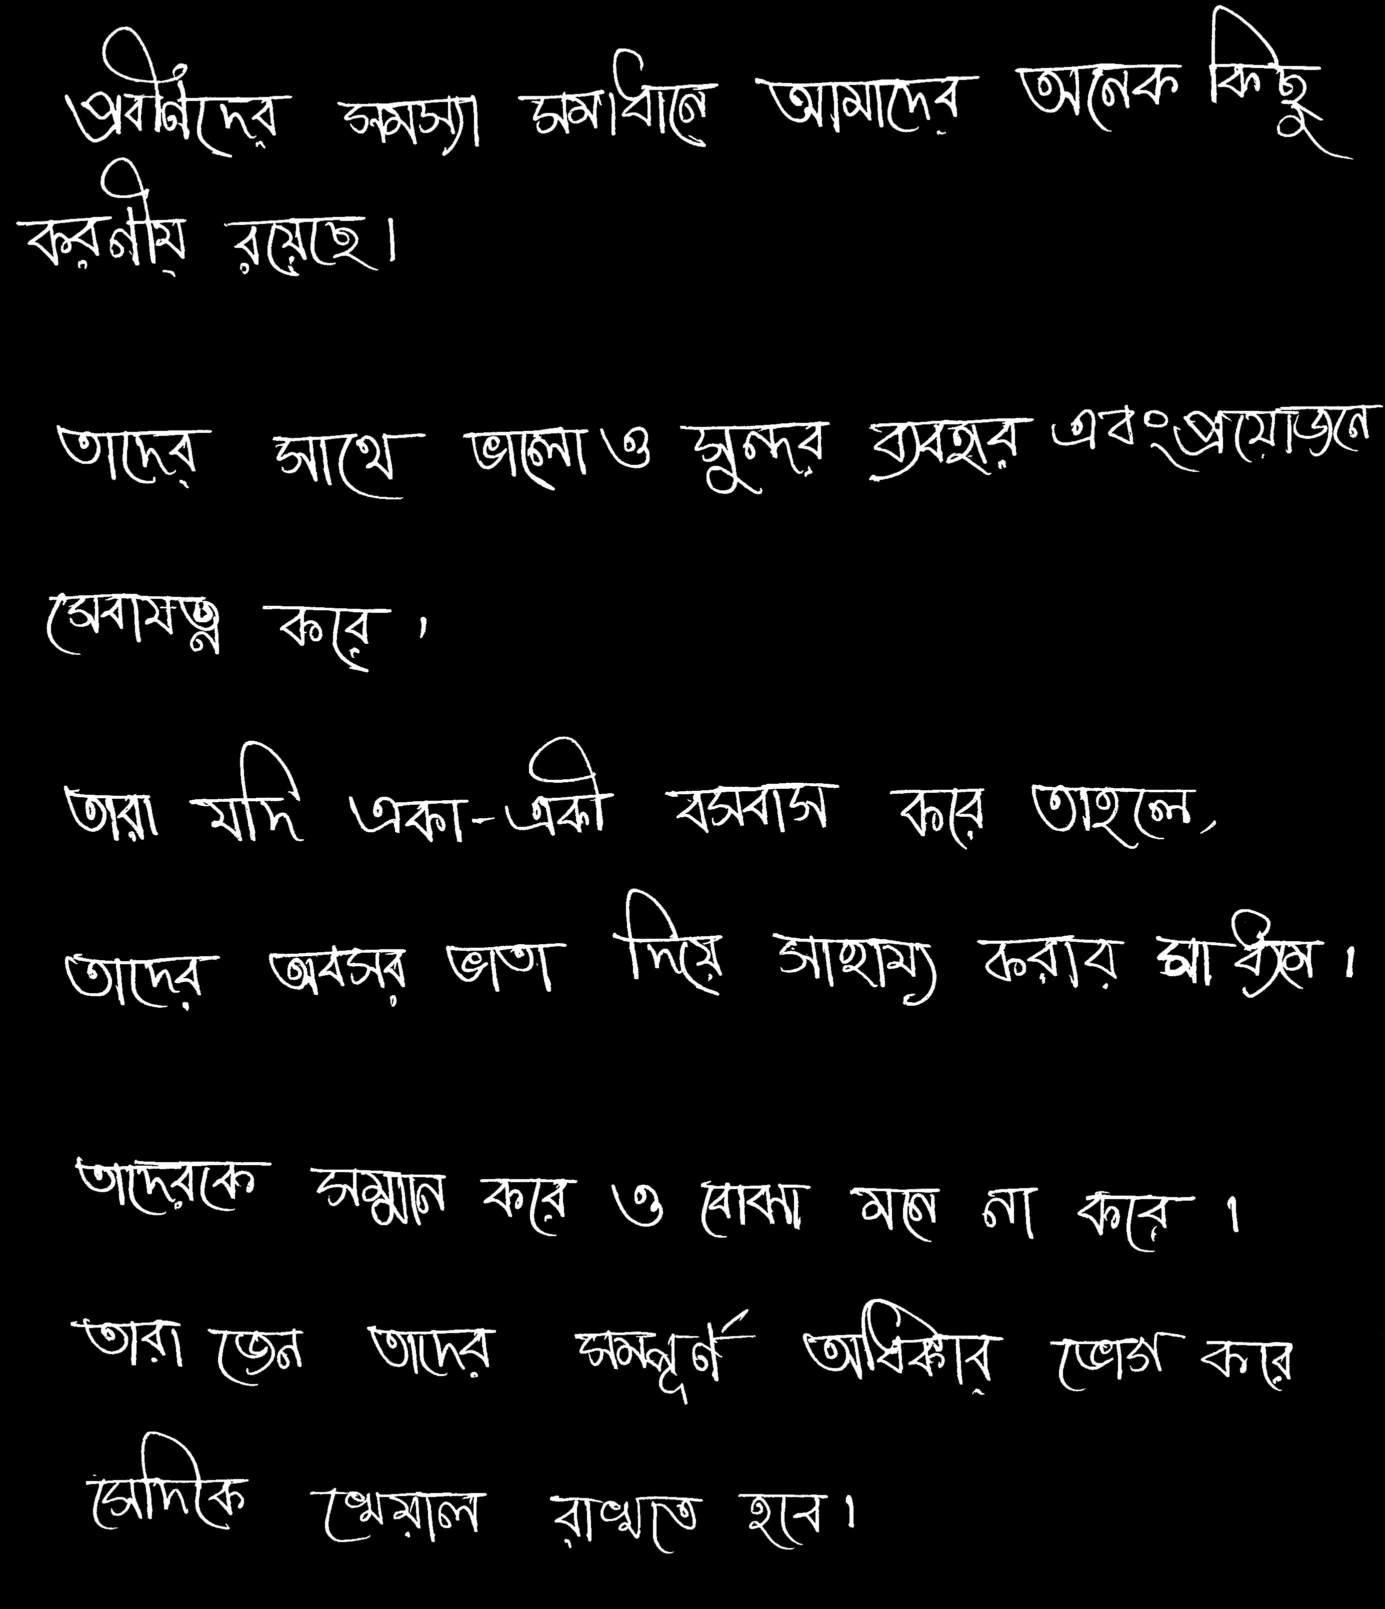 প্রবীনদের সমস্যা সমাধানে আমাদের অনেক কিছু
করণীয় রয়েছে।
তাদের সাথে ভালো ও সুন্দর ব্যবহার এবং প্রয়োজনে
সেবাযত্ন করে।
তারা যদি একা-একী বসবাস করে তাহলে,
তাদের অবসর ভাতা দিয়ে সাহায্য করার মাধ্যমে।
তাদেরকে সম্মান করে ও বোঝা মনে না করে।
তারা জেন তাদের সমপূর্ণ অধিকার ভোগ করে
সেদিকে খেয়াল রাখতে হবে।